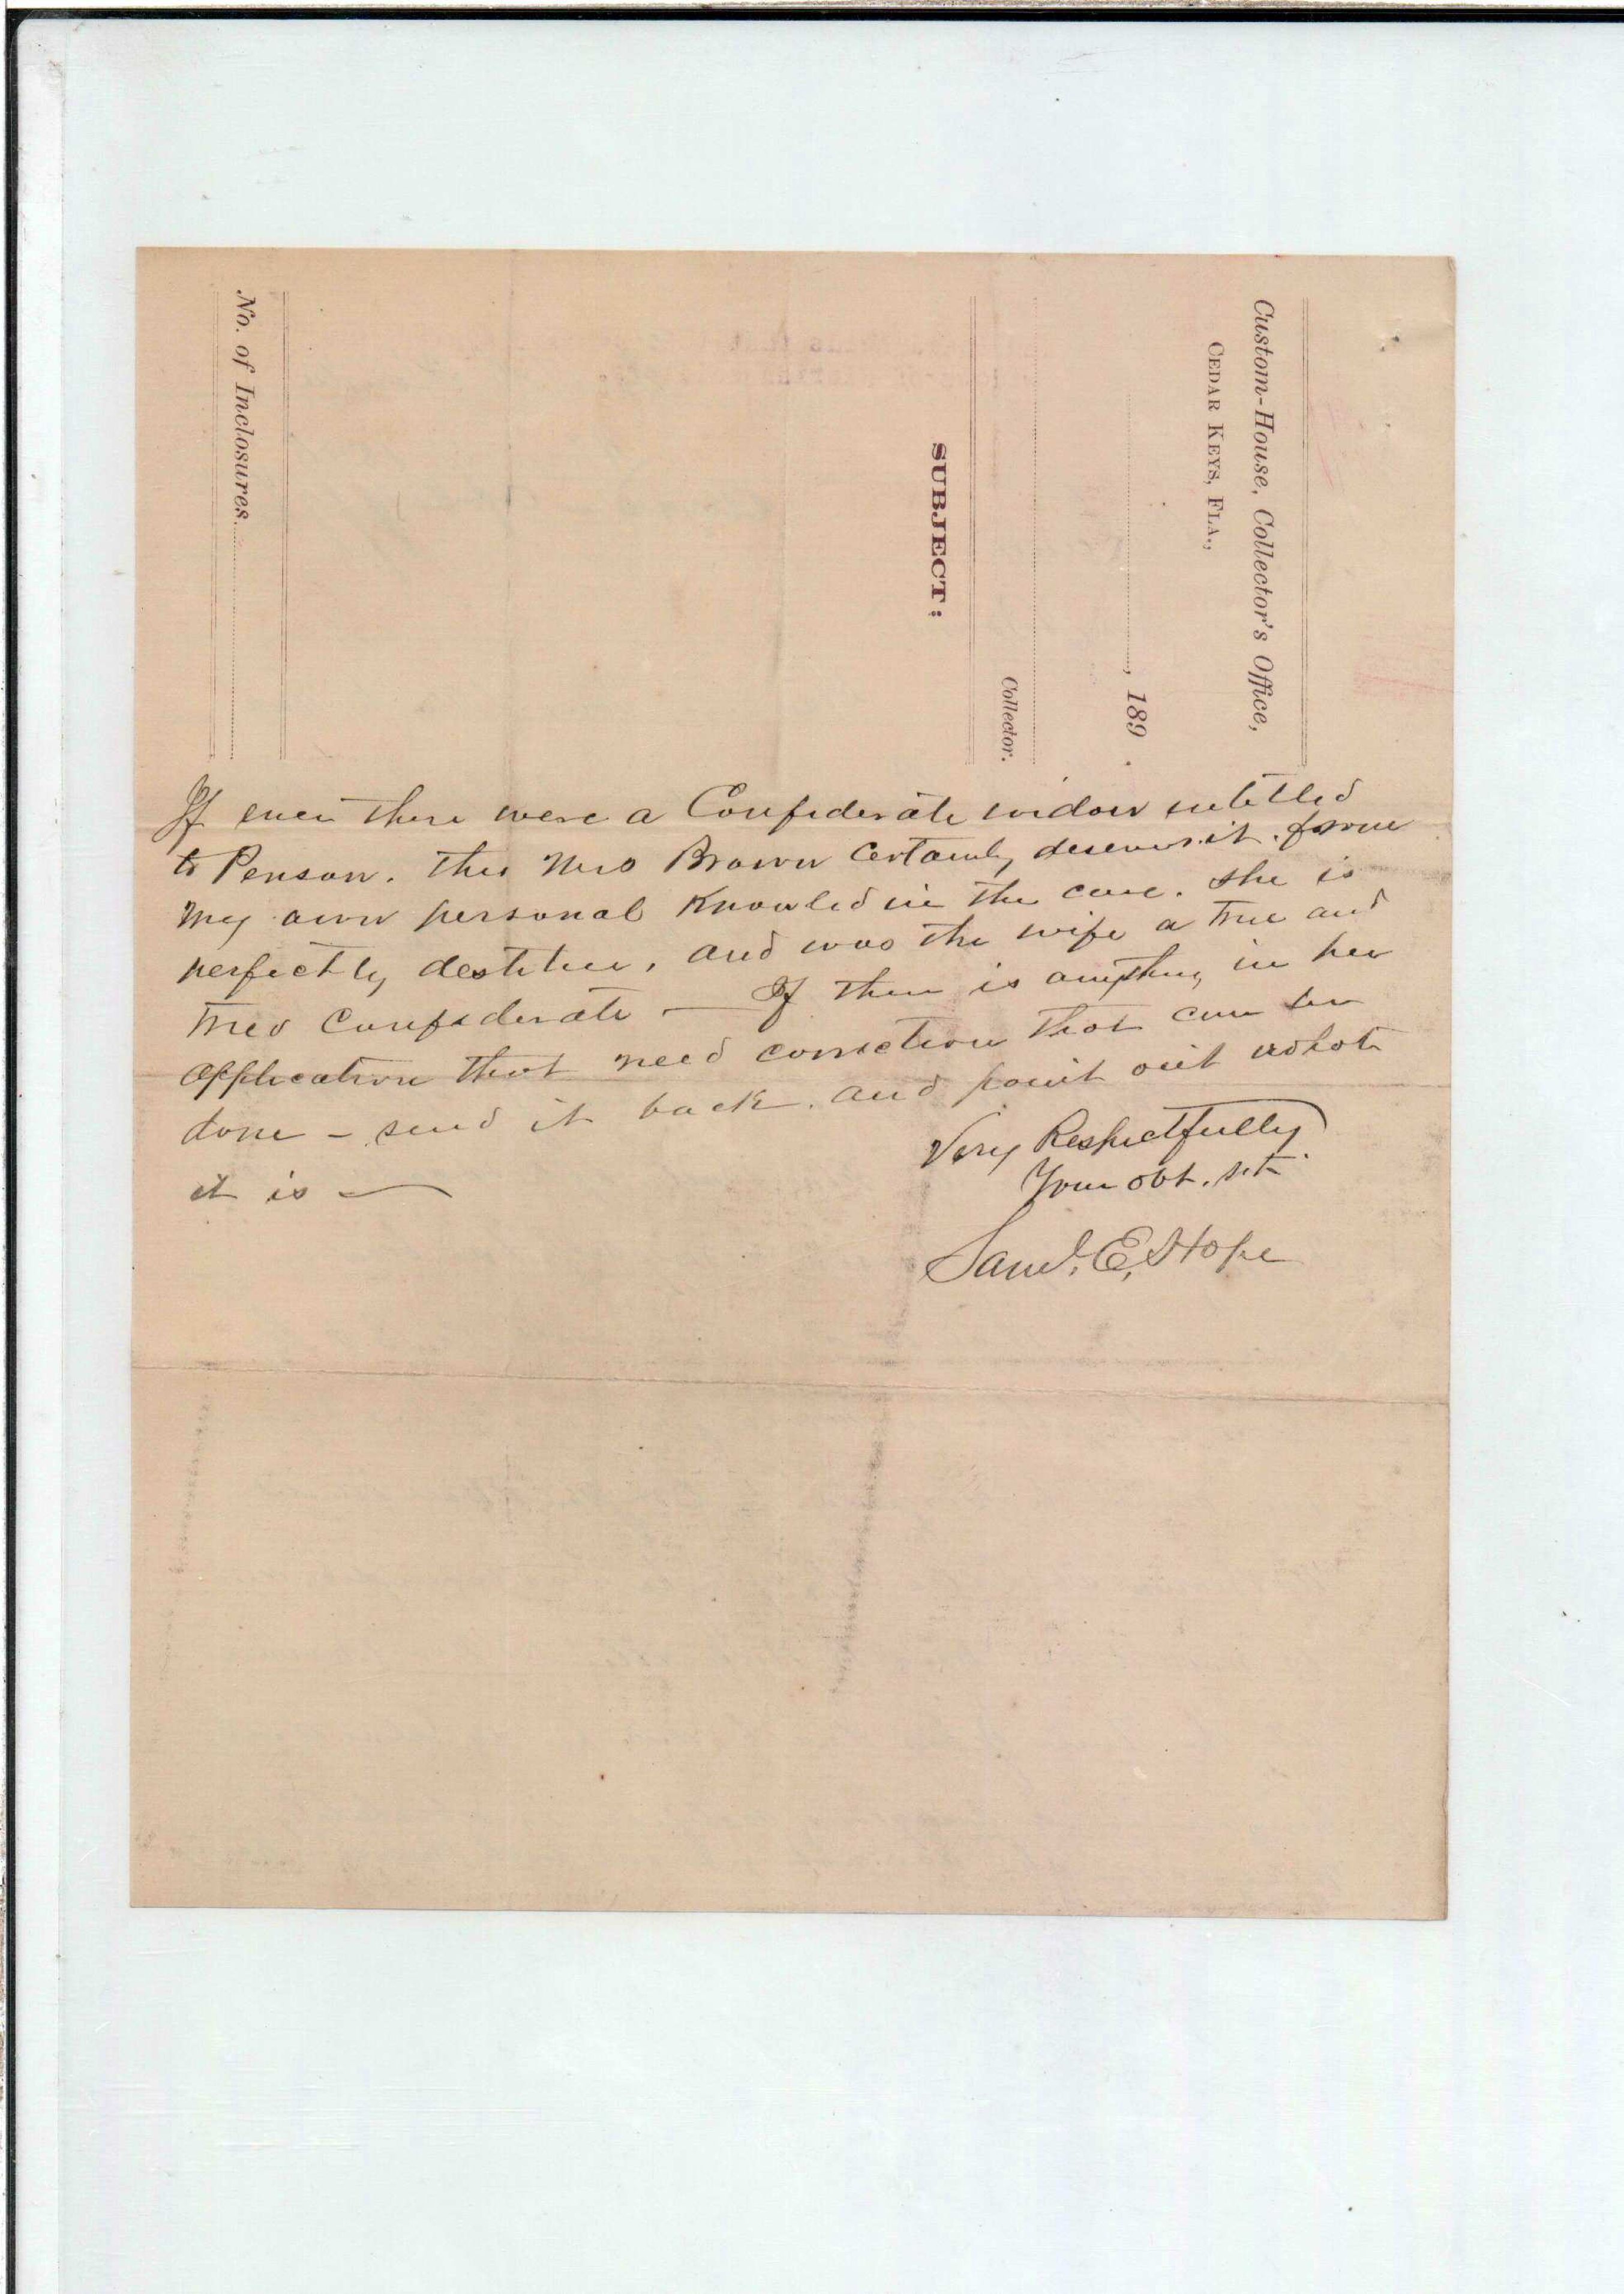 Custom-House, Collector's Office,
CEDAR KEYS, FLA.,
, 189 .
Collector.
SUBJECT:
No. of Inclosures
If ever there were a Confederate widow entitled
to Penson. this Mrs Brown certainly deserves it. from
my own personal Knowled in the case. She is
perfectly destitue, and was the wife a true and
tried Confederate — If there is anything in her
application that need correction that can be
done – send it back. and point out what
it is —
Very Respectfully
Your obt. svt.
Saml. E. Hope